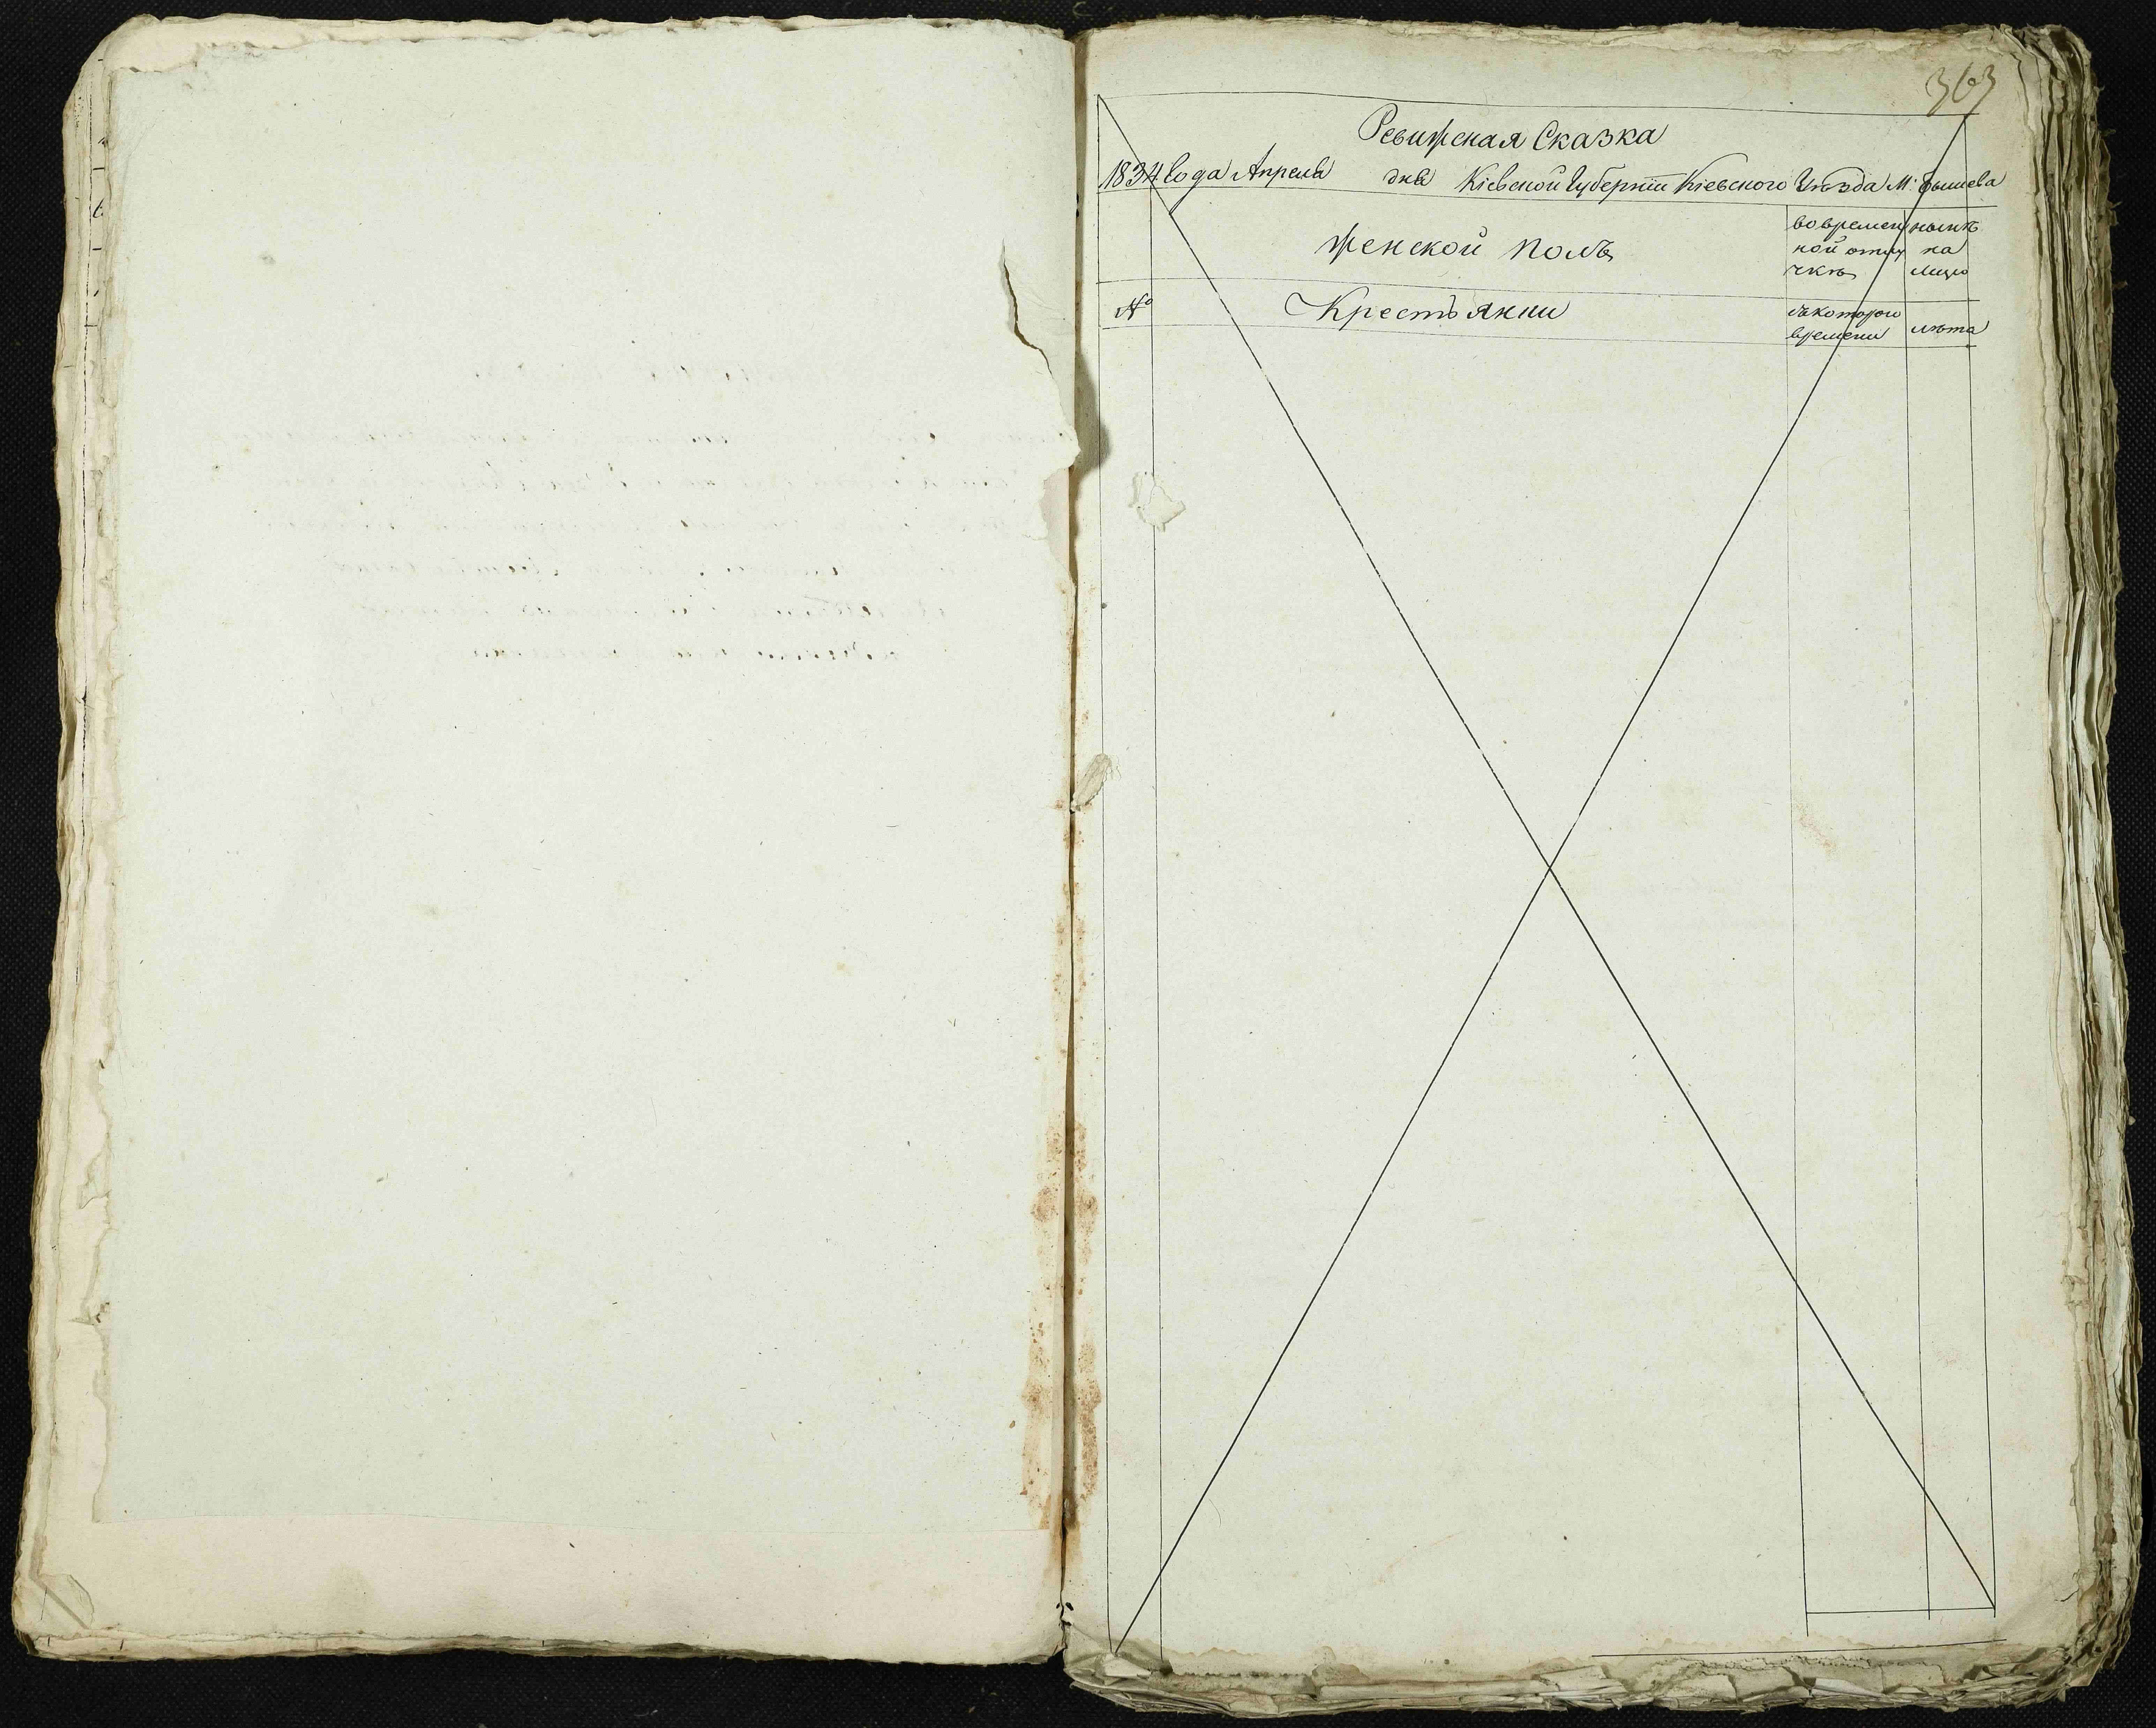 363
Ревижская Сказка
1834 года Апреля дня Кіевской Губерніи Кіевского Уѣзда М: Бышева
женской полъ
вовремен
ной отлу
чкѣ
нынѣ
на
лицо
№
Крестьянки
съкоторого
времени
лѣта